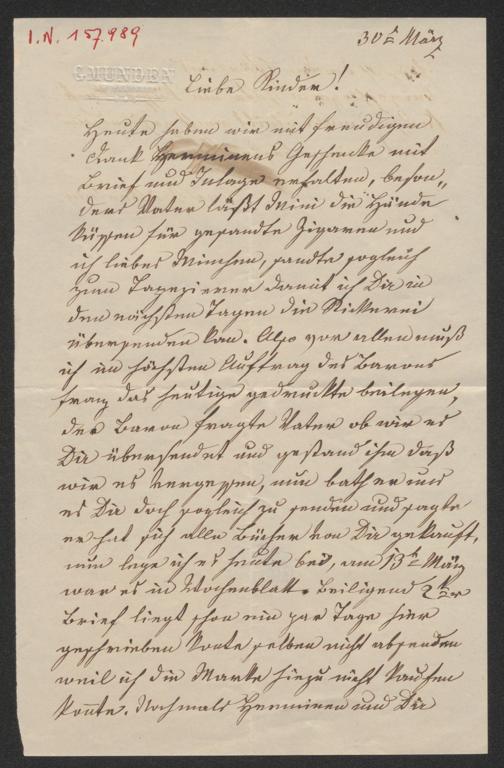 I.N. 157.989
30ᵗ März
GMUNDEN
Liebe Kinder!
Heute haben wir mit freudigen
Dank Herminens Geschenke mit
Brief und Inlage erhalten, beson„
ders Vater läßt Mini die Hände
küssen für gesandte Zigaren und
ich liebes Minchen, sandte sogleich
zum Tapezierer damit ich Dir in
den nächsten Tagen die Stickerei
übersenden kan. Also vor allen muß
ich im höchsten Auftrag des Barons
Franz das heutige gedruckte beilegen,
der Baron fragte Vater ob wir es
Dir übersendet und gestand ihm daß
wir es vergessen, nun bath er uns
es Dir doch sogleich zu senden und sagte
er hat sich alle Bücher von Dir gekauft,
nun lege ich es heute bei, am 13ᵗ März
war es im Wochenblatt. Beiligend
Brief liegt schon ein par Tage hier
geschrieben konte selben nicht absenden
weil ich die Marke hiezu nicht kaufen
konte. Nochmals Herminen und Dir